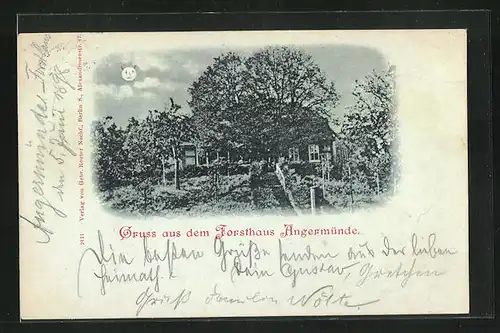 Angermünder Forsthaus
den 5. Juni 1898
2131 Verlag von Gebr. Reuter Nachf., Berlin S., Alexandrinenstr. 37.
Gruss aus dem Forsthaus Angermünde.
Die besten Grüße senden aus der lieben
Heimath! Dein Gustav, Gretchen
Gruß Familie Nölte